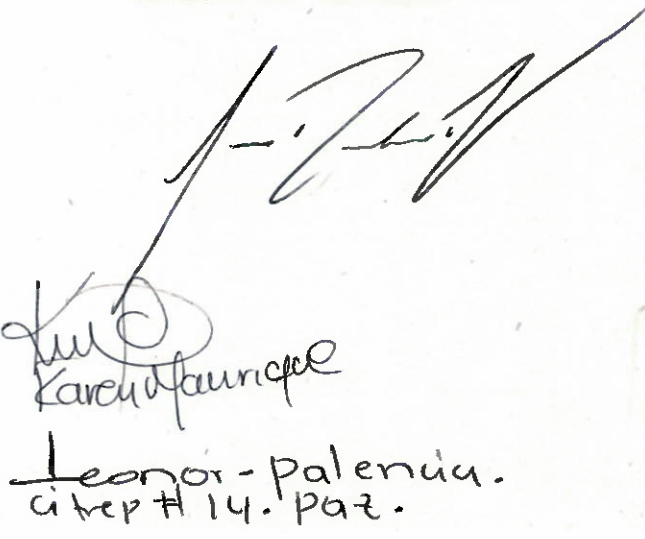 Karen Manrique
Leonor - palencia.
citrep # 14. paz.